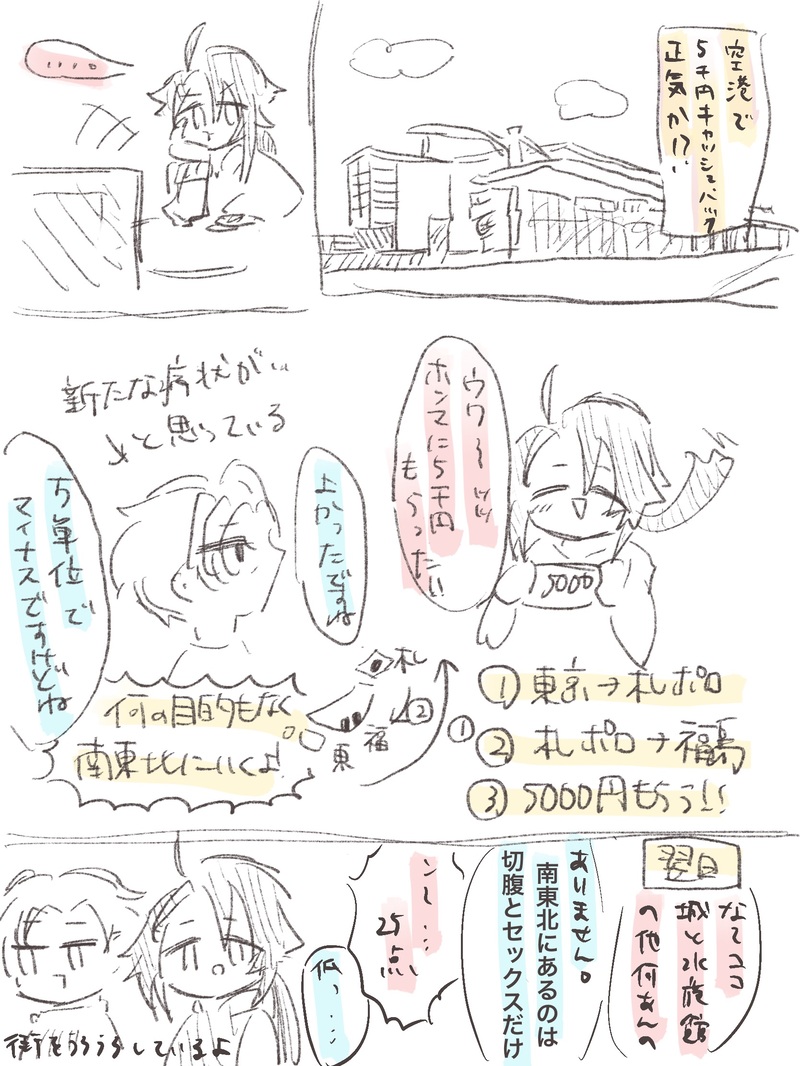 空港で
5千円キャッシュバック
正気か!?
‥‥
ウワ〜ッッ
ホンマに5千円
もらった!!
5000
よかったですね
新たな病状が…
と思っている
万単位で
マイナスですけどね
①東京→札ポロ
②札ポロ→福島
③5000円もらう!!
札
②
福
東
①
何の目的もなく
南東北にいくよ!
翌日
なてココ
城と水族館
の他何あんの
ありません。
南東北にあるのは
切腹とセックスだけ
ンー…
25点
低っ…
街をうろうろしているよ